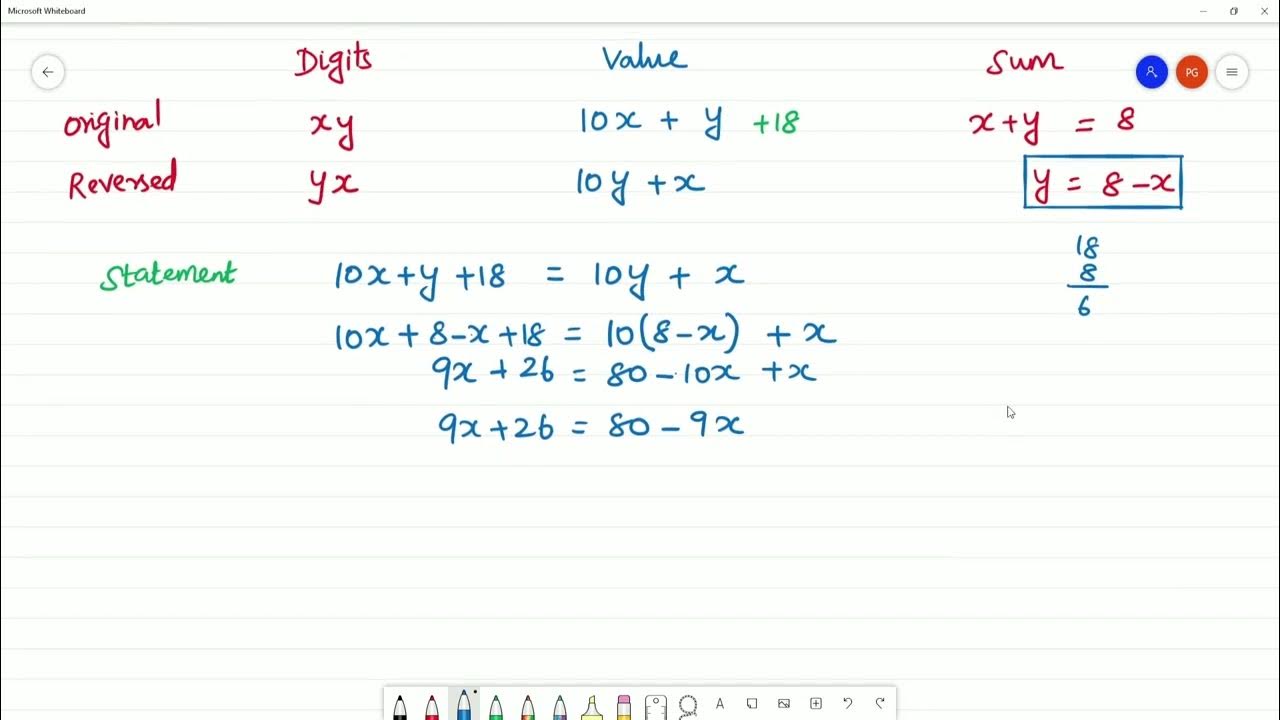 Microsoft Whiteboard
Digits Value Sum
PG
original xy 10x + y +18 x+y = 8
Reversed yx 10y +x y = 8-x
18
8
6
Statement 10x+y +18 = 10y + x
10x + 8-x +18 = 10(8-x) + x
9x + 26 = 80-10x +x
9x+26 = 80-9x
A